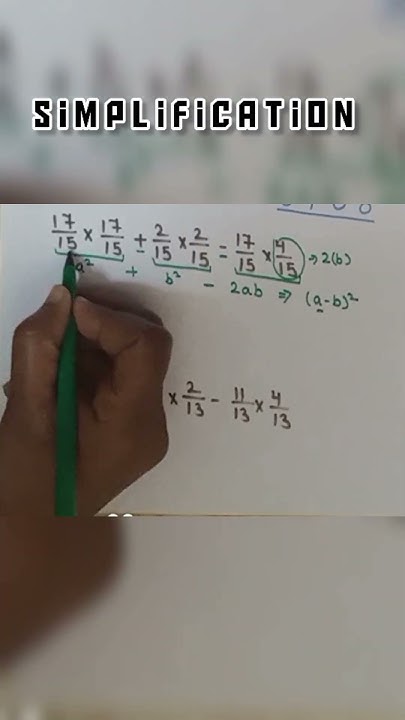 SIMPLIFICATION
17/15 × 17/15 ± 2/15 × 2/15 = 17/15 × 4/15 → 2(b)
a² + b² - 2ab ⇒ (a-b)²
× 2/13 - 11/13 × 4/13